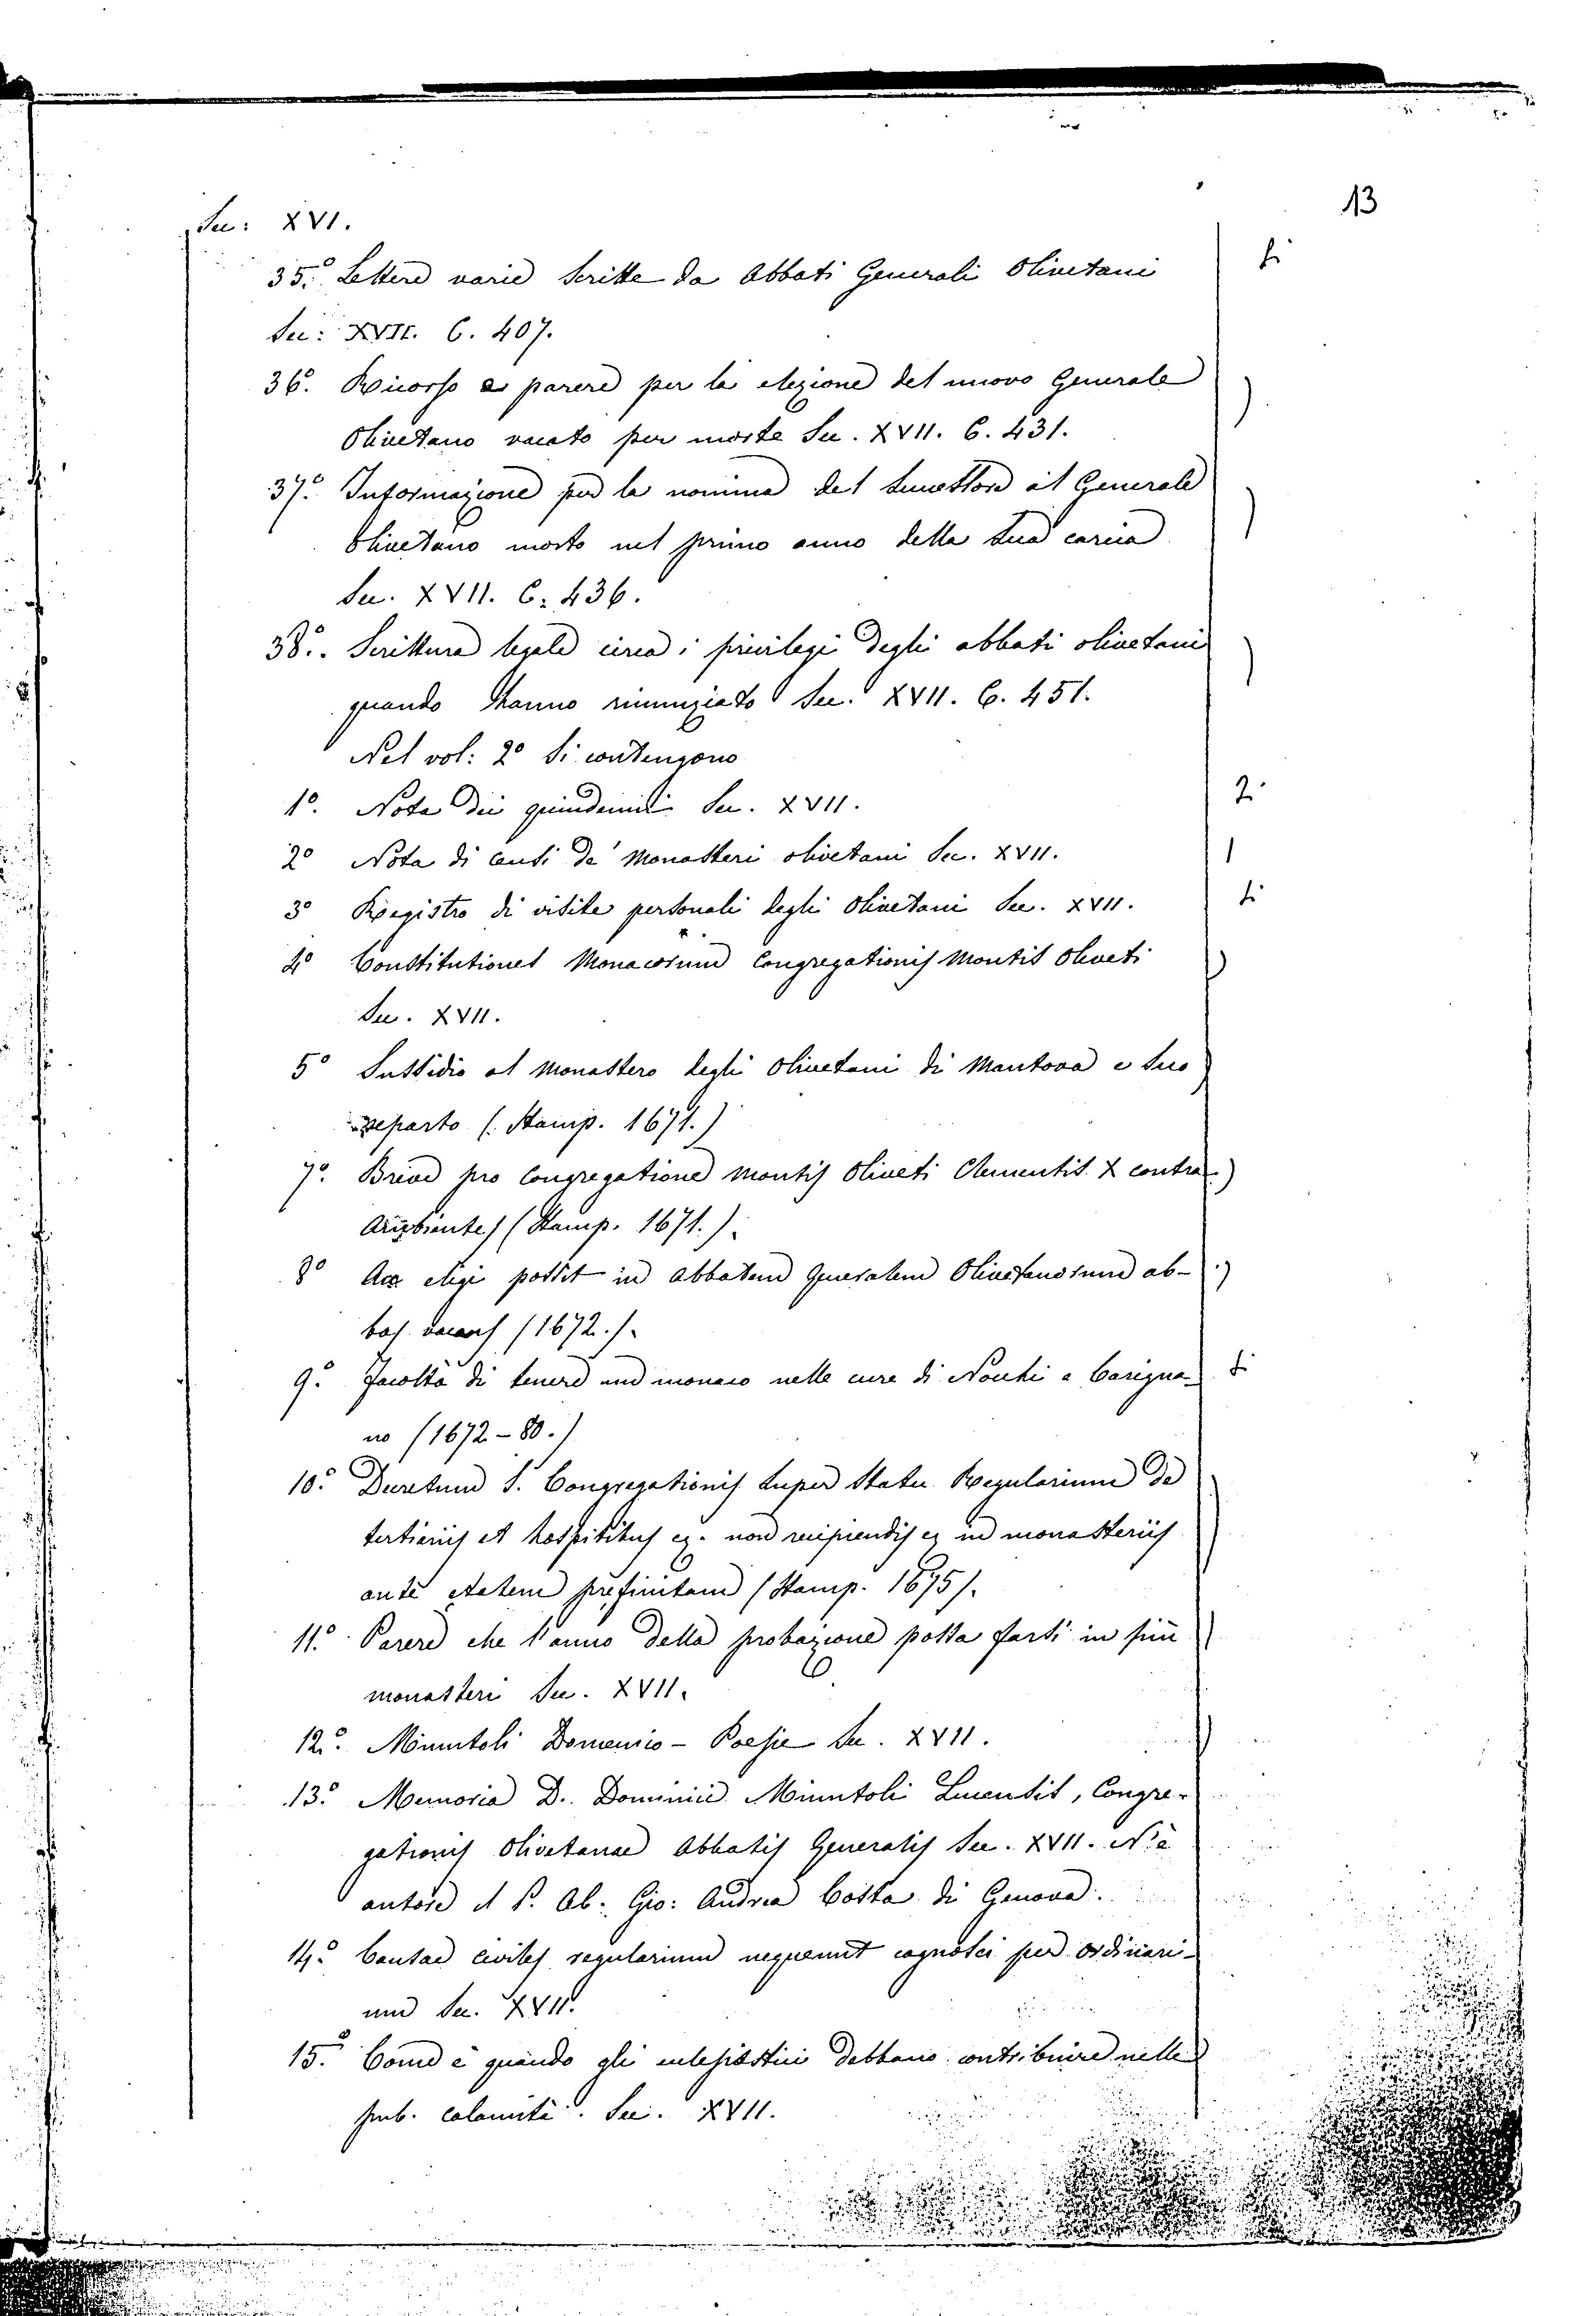 13
Sec: XVI.
35.° Lettere varie scritte da Abbati Generali Olivetani
Sec: XVII. C. 407.
36.° Ricorso e parere per la elezione del nuovo Generale
Olivetano vacato per morte Sec. XVII. C. 431.
37.° Informazione per la nomina del successore al Generale
Olivetano morto nel primo anno della sua carica
Sec. XVII. C. 436.
38.° Scrittura legale circa i privilegi degli abbati olivetani
quando hanno rinunziato Sec. XVII. C. 451.
Nel vol: 2° si contengono
1°. Nota dei quindenni Sec. XVII. 2
2° Nota di censi de' Monasteri olivetani Sec. XVII. 1
3° Registro di visite personali degli Olivetani Sec. XVII.
4° Constitutiones Monacorum Congregationis Montis Oliveti
Sec. XVII.
5° Sussidio al Monastero degli Olivetani di Mantova e suo
reparto (Stamp. 1671.)
7°. Breve pro Congregatione Montis Oliveti Clementis X contra
Ambientes (Stamp. 1671.)
8° An eligi possit in Abbatem Generalem Olivetanorum ab-
bas vacans (1672.)
9.° Facoltà di tenere un monaco nelle cure di Nocchi e Carigna-
no (1672-80.)
10.° Decretum S. Congregationis super statu Regularium de
tertiariis et hospitibus ex. non recipiendis ex in monasteriis
ante etatem prefinitam (Stamp. 1675).
11.° Parere che l'anno della probazione possa farsi in più
monasteri Sec. XVII.
12.° Minutoli Domenico - Poesie Sec. XVII.
13.° Memoria D. Dominici Minutoli Lucensis, Congre-
gationis Olivetanae Abbatis Generalis Sec. XVII. N'è
autore il P. Ab. Gio: Andrea Costa di Genova.
14.° Causae civiles regularium nequeunt cognosci per ordinari-
um Sec. XVII.
15.° Come e quando gli eclesiastici debbano contribuire nelle
pub. calamità. Sec. XVII.